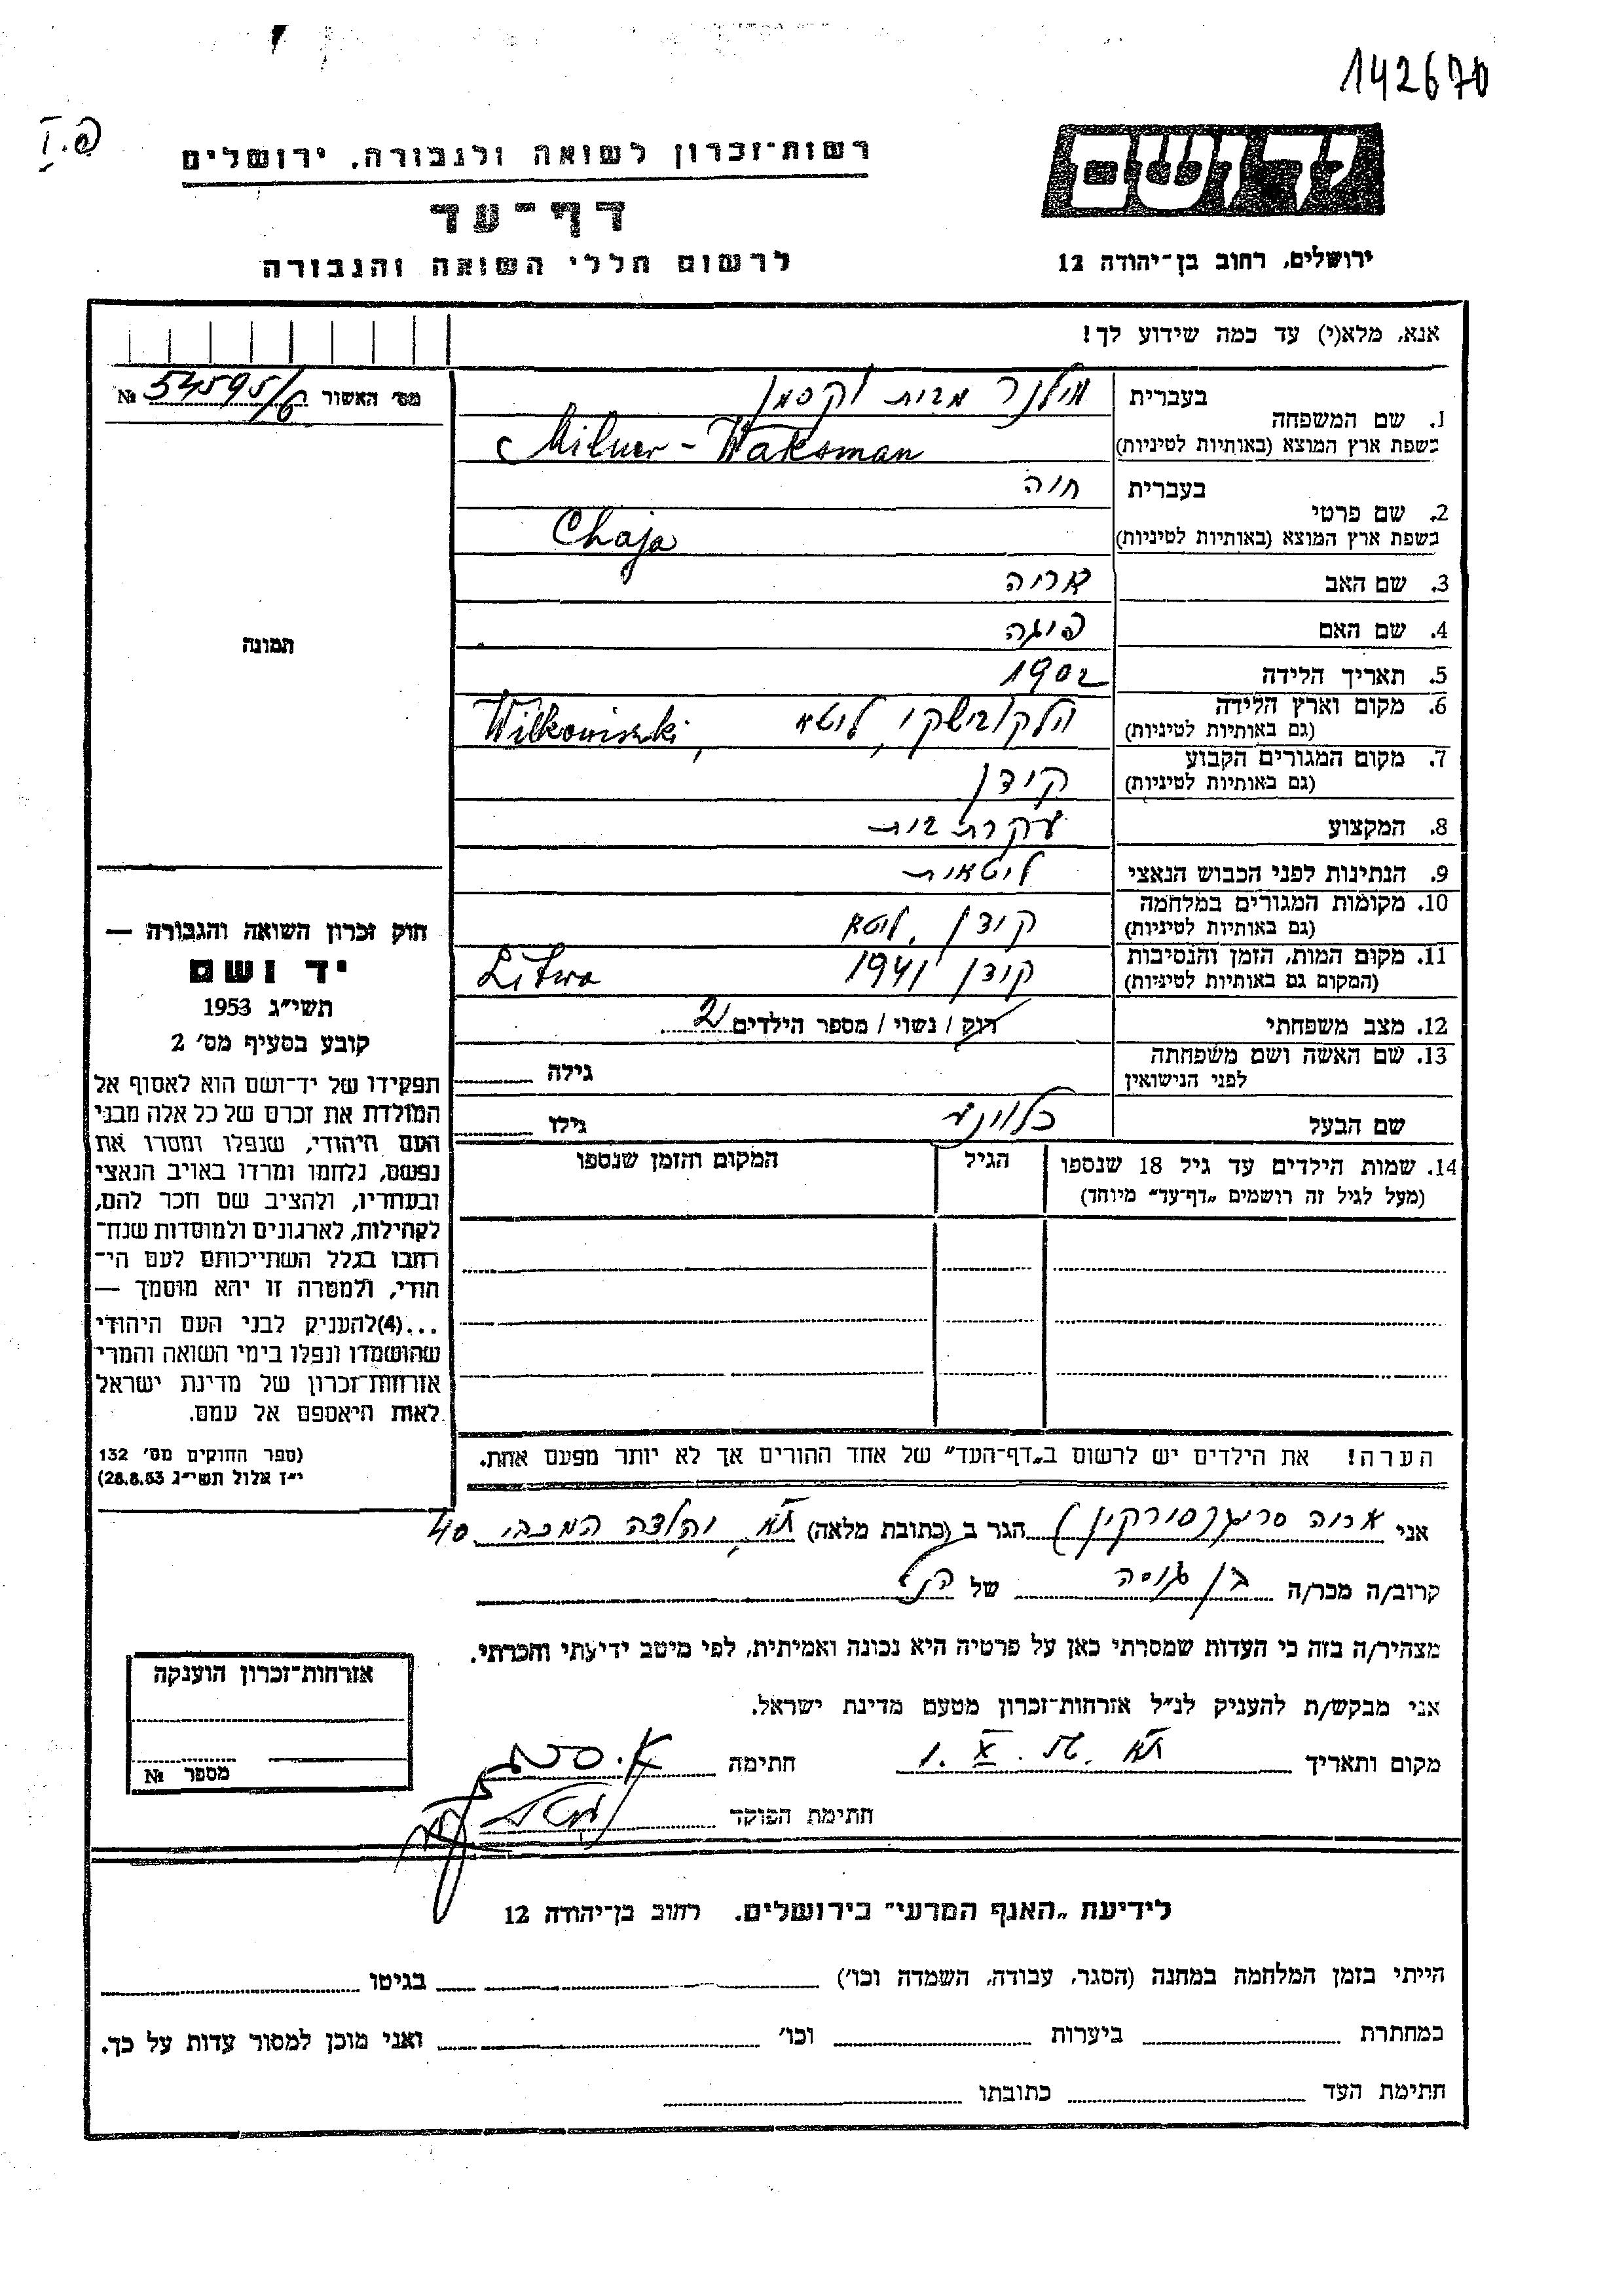 142670
רשות־זכרון לשואה ולגבורה, ירושלים
דף־עד
לרשום חללי השואה והגבורה
יד ושם
ירושלים, רחוב בן־יהודה 12
אנא, מלא(י) עד כמה שידוע לך!
מס׳ האשור 54595/6 №
תמונה
1. שם המשפחה בעברית מילנר מבית וקסמן
בשפת ארץ המוצא (באותיות לטיניות) Milner - Waksman
2. שם פרטי בעברית חיה
בשפת ארץ המוצא (באותיות לטיניות) Chaja
3. שם האב אריה
4. שם האם פיגה
5. תאריך הלידה 1902
6. מקום וארץ הלידה (גם באותיות לטיניות) ליטא Wilkowiszki,
7. מקום המגורים הקבוע (גם באותיות לטיניות) קידן
8. המקצוע עקרת בית
9. הנתינות לפני הכבוש הנאצי ליטאית
10. מקומות המגורים במלחמה (גם באותיות לטיניות) קידן, ליטא
11. מקום המות, הזמן והנסיבות (המקום גם באותיות לטיניות) קידן 1941 Litwa
12. מצב משפחתי רוק / נשוי / מספר הילדים 2
13. שם האשה ושם משפחתה לפני הנישואין גילה
שם הבעל גילו
14. שמות הילדים עד גיל 18 שנספו (מעל לגיל זה רושמים „דף־עד״ מיוחד) הגיל המקום והזמן שנספו
הערה! את הילדים יש לרשום ב„דף־העד״ של אחד ההורים אך לא יותר מפעם אחת.
חוק זכרון השואה והגבורה —
יד ושם
תשי״ג 1953
קובע בסעיף מס׳ 2
תפקידו של יד־ושם הוא לאסוף אל
המולדת את זכרם של כל אלה מבני
העם היהודי, שנפלו ומסרו את
נפשם, נלחמו ומרדו באויב הנאצי
ובעוזריו, ולהציב שם וזכר להם,
לקהילות, לארגונים ולמוסדות שנח־
רבו בגלל השתייכותם לעם הי־
הודי, ולמטרה זו יהא מוסמך —
...(4) להעניק לבני העם היהודי
שהושמדו ונפלו בימי השואה והמרי
אזרחות־זכרון של מדינת ישראל
לאות היאספם אל עמם.
(ספר החוקים מס׳ 132
י״ז אלול תשי״ג 28.8.53)
אני אריה הגר ב (כתובת מלאה) ת״א, יהודה המכבי 40
קרוב/ה מכר/ה בן דודה של הנ״ל
מצהיר/ה בזה כי העדות שמסרתי כאן על פרטיה היא נכונה ואמיתית, לפי מיטב ידיעתי והכרתי.
אני מבקש/ת להעניק לנ״ל אזרחות־זכרון מטעם מדינת ישראל.
מקום ותאריך ת״א חתימה
חתימת הפוקד
אזרחות־זכרון הוענקה
מספר №
לידיעת „האגף המדעי״ בירושלים. רחוב בן־יהודה 12
הייתי בזמן המלחמה במחנה (הסגר, עבודה, השמדה וכו׳) בגיטו
במחתרת ביערות וכו׳ ואני מוכן למסור עדות על כך.
חתימת העד כתובתו